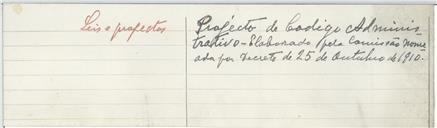 Leis e projectos
Projécto de Codigo Adminis
trativo - Elaborado pela Comissão nome
ada por Decreto de 25 de Outubro de 1910.